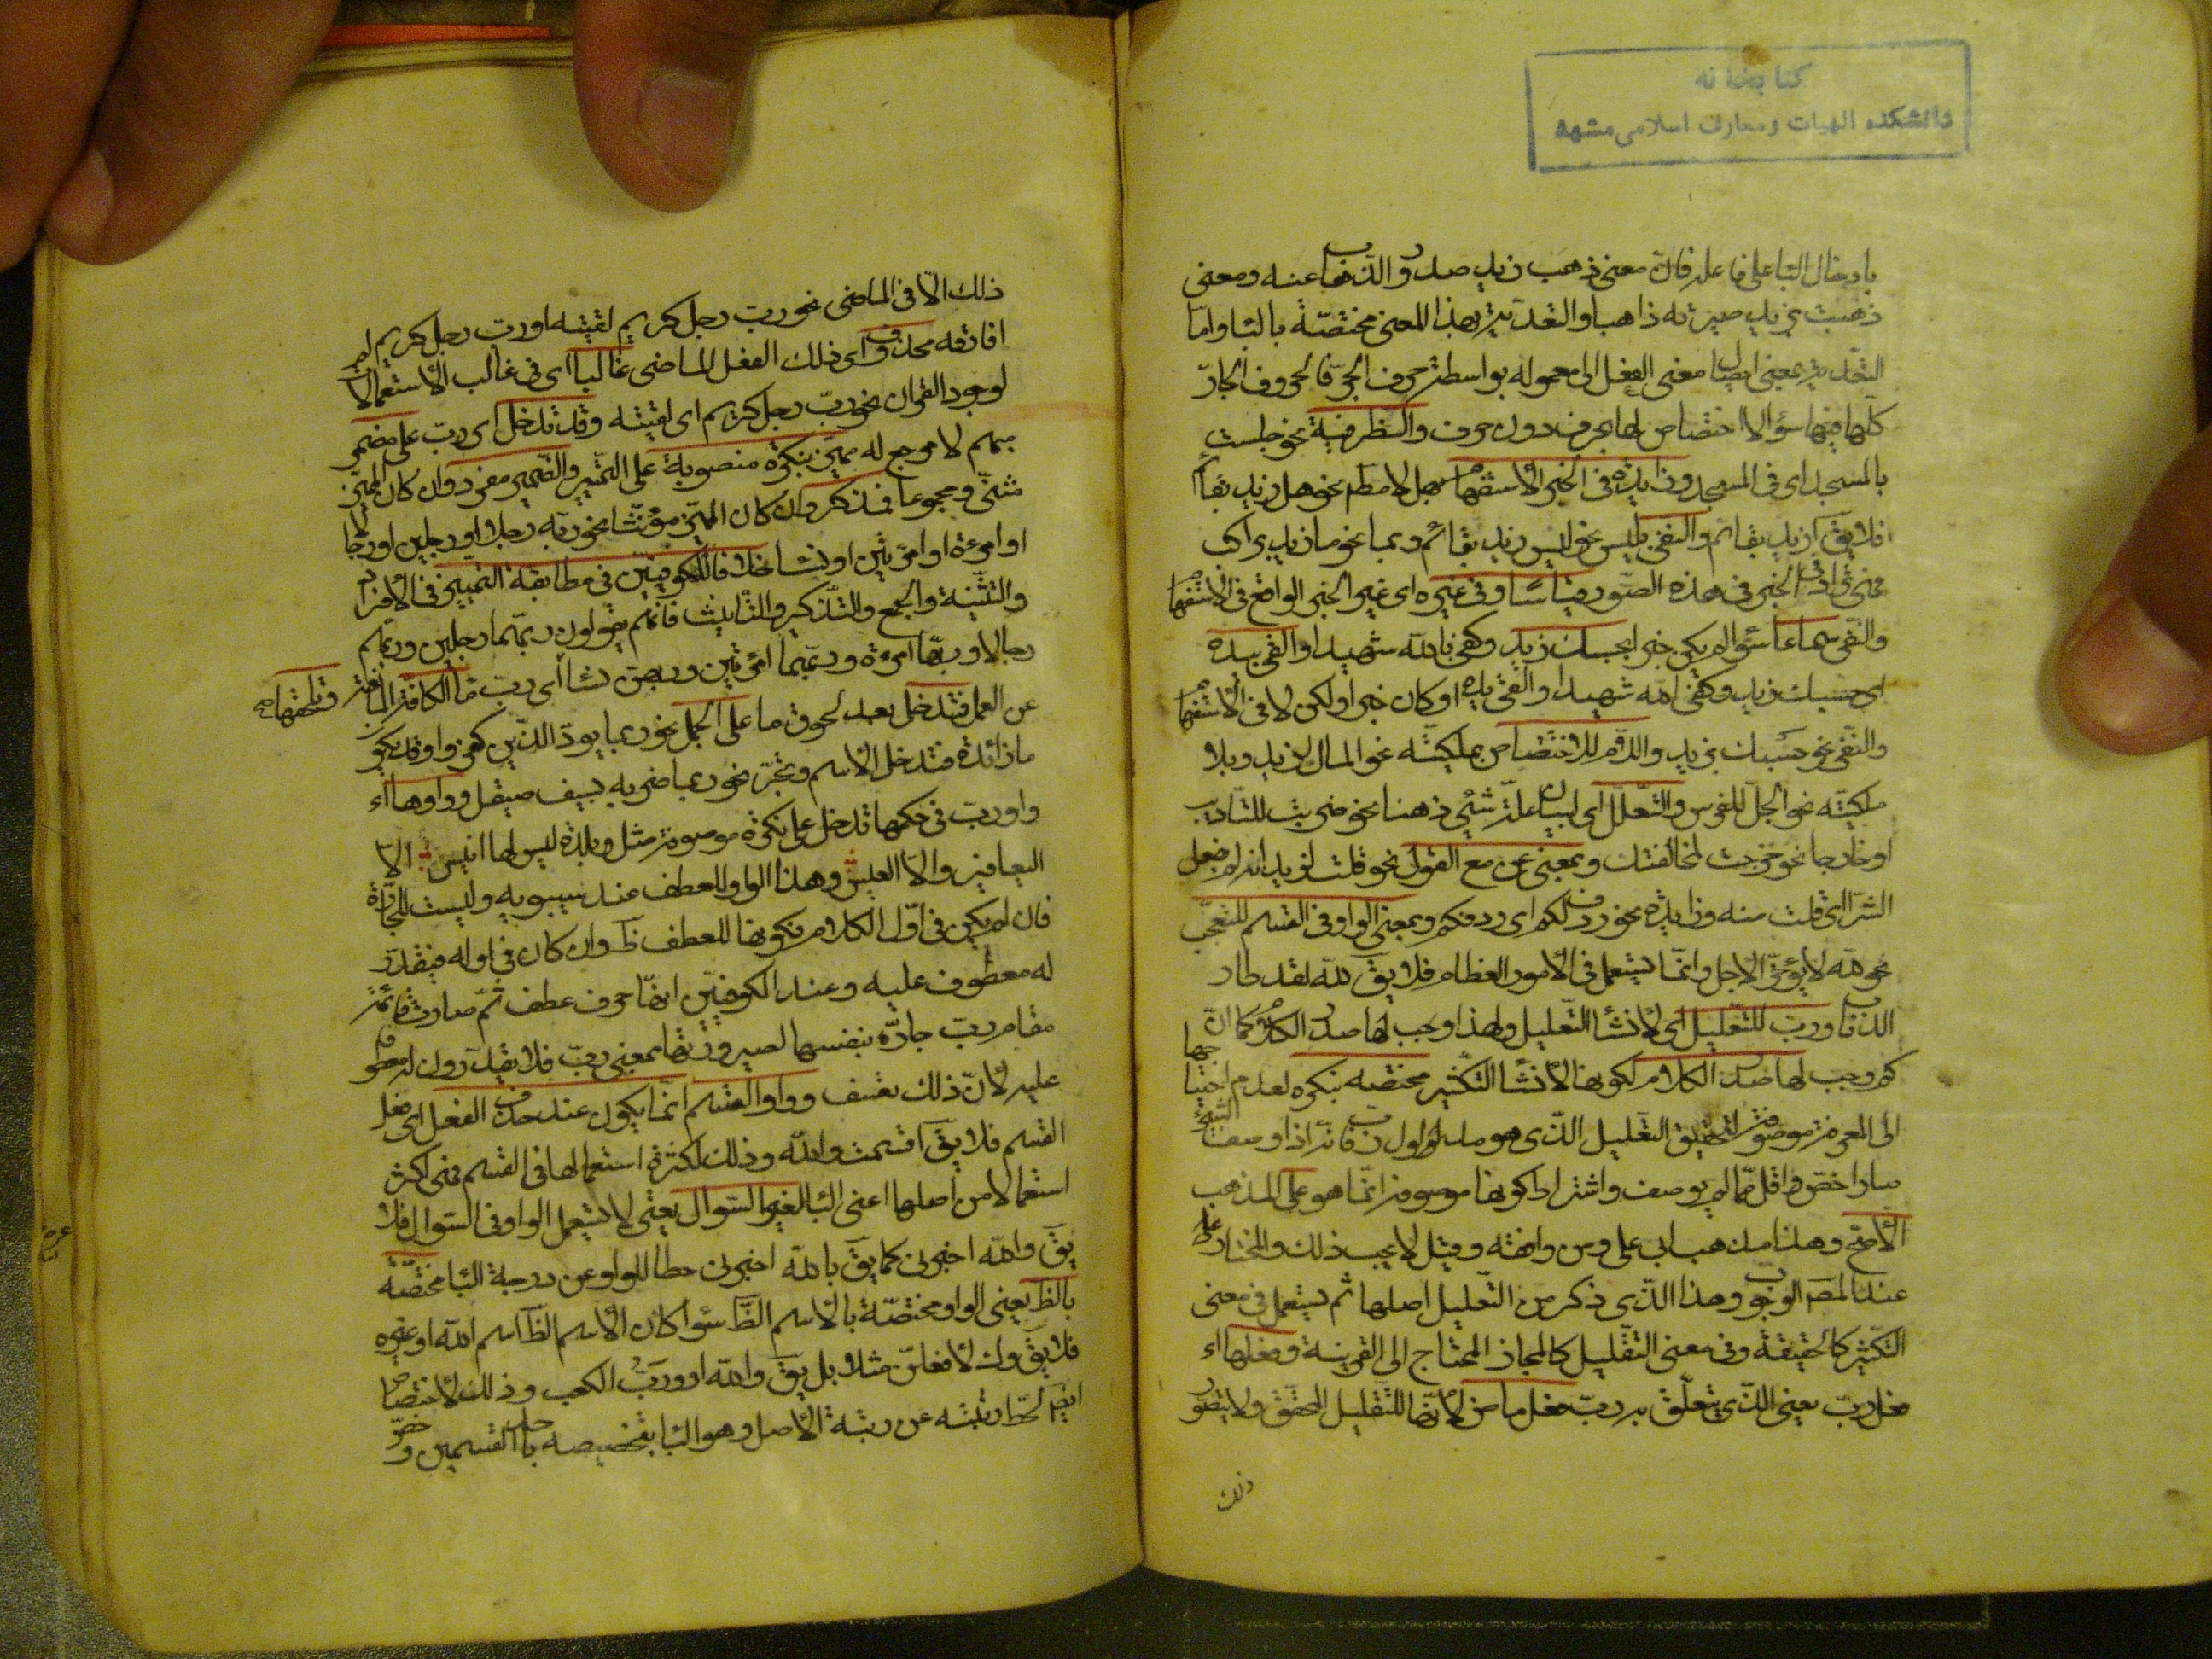 كتابخانه
دانشكده الهيات و معارف اسلامی مشهد
بادخال الباء على فاعله فان معنى ذهب زيد صدر الذهاب عنه ومعنى
ذهبت بزيد صيرته ذاهبا والتعدية بهذا المعنى مختصة بالباء واما
التعدية بمعنى ايصال معنى الفعل الى معموله بواسطة حرف الجر فالحروف الجارة
كلها فيها سواء لا اختصاص لها بحرف دون حرف والظرفية نحو جلست
بالمسجد اى فى المسجد وزايدة فى الخبر الاستفهام بهل لا مطم نحو هل زيد بقائم
فلا يق ازيد بقائم والنفى بليس نحو ليس زيد بقائم وبما نحو ما زيد براكب
فهى تزاد فى الخبر فى هذه الصور قياسا وفى غيره اى غير الخبر الواقع فى الاستفهام
والنفى سماعا سواء لم يكن خبرا بحسبك زيد وكفى بالله شهيدا والقى بيده
اى حسبك زيد وكفى الله شهيدا والقى يده او كان خبرا ولكن لا فى الاستفهام
والنفى نحو حسبك بزيد واللام للاختصاص بملكيته نحو المال لزيد وبلا
ملكيته نحو الجل للفرس والتعلل اى لبيان علة شئ ذهنا نحو ضربت للتاديب
او خارجا نحو خرجت لمخافتك وبمعنى عن مع القول نحو قلت لزيد انه لم يفعل
الشر اى قلت منه وزايدة نحو ردف لكم اى ردفكم وبمعنى الواو فى القسم للتعجب
نحو لله لا يؤخر الاجل وانما يستعمل فى الامور العظام فلا يق لله لقد طار
الذباب ورب للتقليل اى لانشاء التقليل ولهذا وجب لها صدر الكلام كما ان
كم وجب لها صدر الكلام لكونها لانشاء التكثير مختصة بنكرة لعدم احتياجها
الى المعرفة موصوفة لتحقيق التقليل الذى هو مدلول رب فانه اذا وصف الشئ
صار اخص واقل مما لم يوصف واشتراط كونها موصوفة انما هو على المذهب
الاصح وهذا مذهب ابى على ومن وافقه وقيل لا يجب ذلك والمختار
عند المص الوجوب وهذا الذى ذكر من التقليل اصلها ثم تستعمل فى معنى
التكثير كالحقيقة وفى معنى التقليل كالمجاز المحتاج الى القرينة وفعلها اى
فعل رب يعنى الذى يتعلق به رب فعل ماض لانها للتقليل المحقق ولا يتصور
ذلك
ذلك الا فى الماضى نحو رب رجل كريم لقيته او رب رجل كريم لم
افارقه محذوف اى ذلك الفعل الماضى غالبا اى فى غالب الاستعمالات
لوجود القرائن نحو رب رجل كريم اى لقيته وقد تدخل اى رب على مضمر
مبهم لا مرجع له مميز بنكرة منصوبة على التمييز والضمير مفرد وان كان المميز
مثنى ومجموعا مذكر وان كان المميز مؤنثا نحو ربه رجلا او رجلين او رجالا
او امرءة او امرئتين او نساء خلافا للكوفيين فى مطابقة التمييز فى الافراد
والتثنية والجمع والتذكير والتانيث فانهم يقولون ربهما رجلين وربهم
رجالا وربها امرءة وربهما امرئتين وربهن نساء اى رب ما الكافة المانعة
وتلحقها
عن العمل فتدخل بعد لحوق ما على الجمل نحو ربما يود الذين كفروا وقد يكون
ما زائدة فتدخل الاسم وتجر نحو ربما ضربة بسيف صيقل وواوها اى
واو رب فى حكمها تدخل على نكرة موصوفة مثل وبلدة ليس لها انيس الا
اليعافير والا العيس وهذا الواو للعطف عند سيبويه وليست للجارة
فان لم يكن فى اول الكلام فكونها للعطف ظ وان كان فى اوله فيقدر
له معطوف عليه وعند الكوفيين انها حرف عطف ثم صارت قائمة
مقام رب جارة بنفسها لصيرورتها بمعنى رب فلا يقدرون له معطوف
عليه لان ذلك تعسف وواو القسم انما يكون عند حذف الفعل اى فعل
القسم فلا يق اقسمت والله وذلك لكثرة استعمالها فى القسم فهى اكثر
استعمالا من اصلها اعنى الباء لغير السوال يعنى لا تستعمل الواو فى السوال فلا
يق والله اخبرنى كما يق بالله اخبرنى حطا للواو عن درجة الباء مختصة
بالظ يعنى الواو مختصة بالاسم الظ سواء كان الاسم الظ اسم الله او غيره
فلا يق وك لافعلن مثلا بل يق والله او ورب الكعبة وذلك لاختصاص
ايض لحط رتبته عن رتبة الاصل وهو الباء بتخصيصه باحد القسمين و